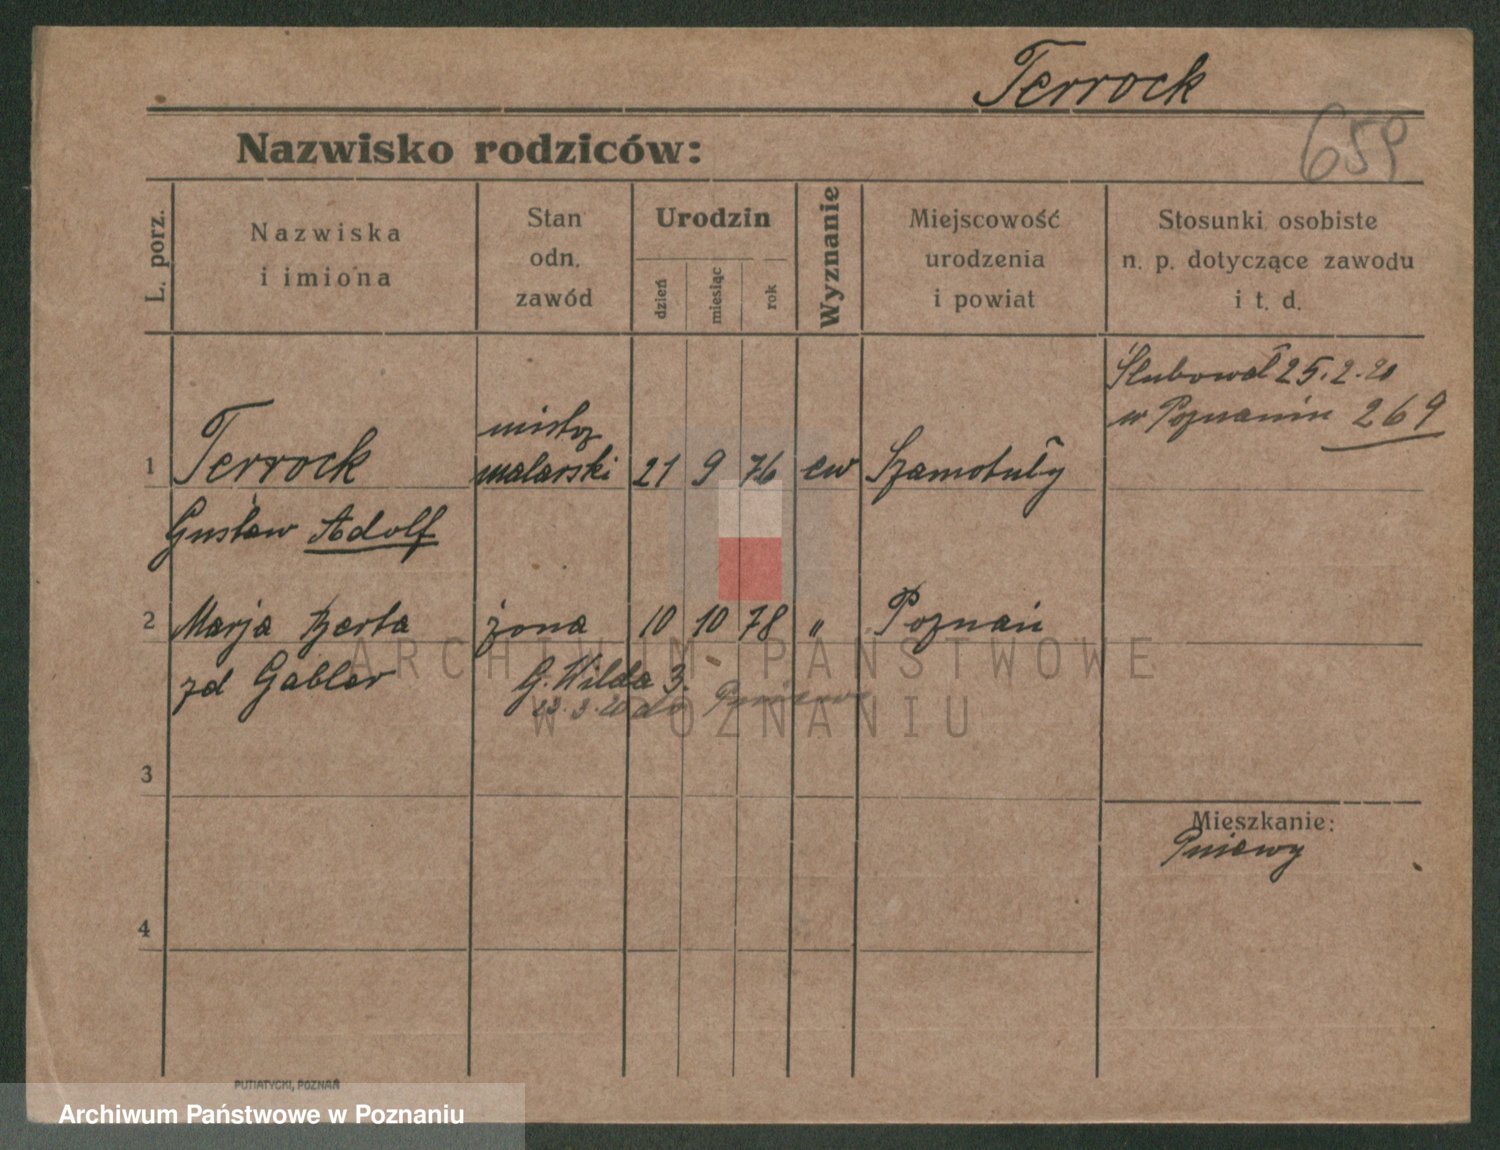 Terrock
659
Nazwisko rodziców:
L. porz.
Nazwiska
i imiona
Stan
odn.
zawód
Urodzin
dzień
miesiąc
rok
Wyznanie
Miejscowość
urodzenia
i powiat
Stosunki osobiste
n. p. dotyczące zawodu
i t. d.
Ślubował 25.2.20
w Poznaniu 269
mistrz
1 Terrock malarski 21 9 76 ew Szamotuły
Gustaw Adolf
2 Marja Berta żona 10 10 78 " Poznań
zd Gabler G. Wilda 3.
23.3.20 do Pniewy
ARCHIWUM PAŃSTWOWE
W POZNANIU
3
Mieszkanie:
Pniewy
4
PUTIATYCKI, POZNAŃ
Archiwum Państwowe w Poznaniu